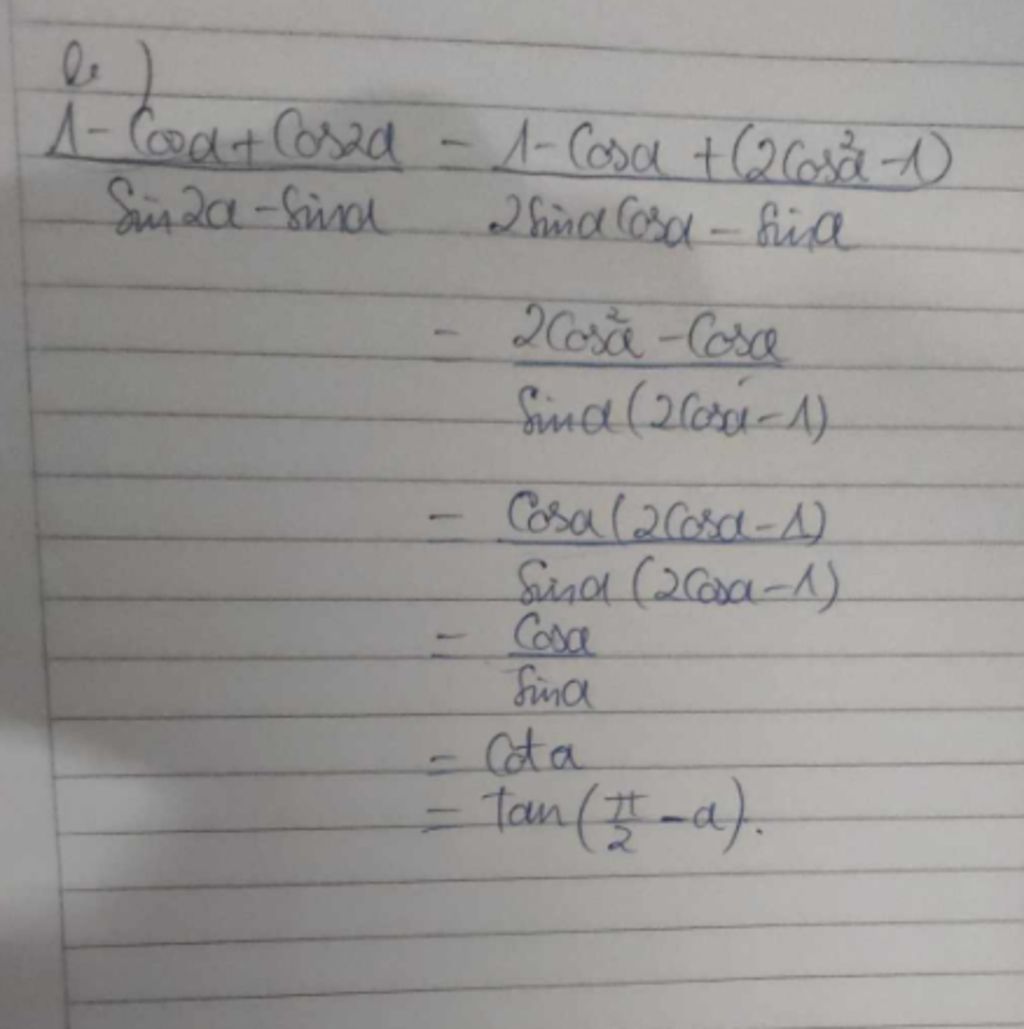 e)
1 - Cosa + Cos2a = 1 - Cosa + (2Cos²a - 1)
Sin2a - Sina 2SinaCosa - Sina
= 2Cos²a - Cosa
Sina(2Cosa - 1)
= Cosa(2Cosa - 1)
Sina(2Cosa - 1)
= Cosa
Sina
= Cot a
= Tan(π/2 - a).